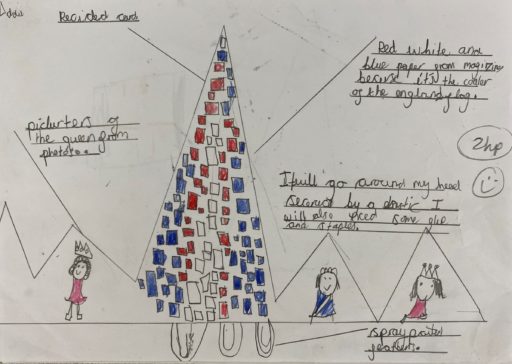 Recicled card
Red white and
blue paper from magizine
because it's the coolor
of the england flag.
picturters of
the queen from
photos..
2hp
I will go around my head
secured by a elastic I
will also need some glue
and staples.
spray painted
feathers.